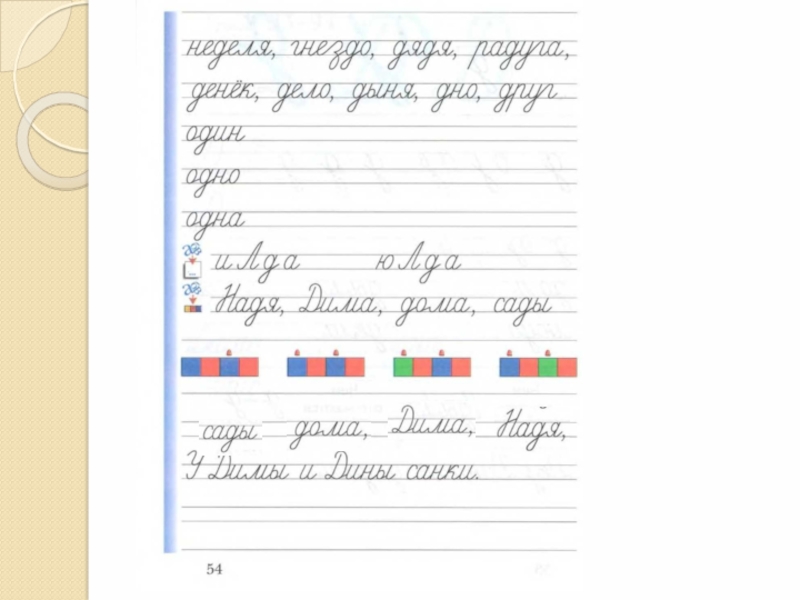 неделя, гнездо, дядя, радуга,
денёк, дело, дыня, дно, друг
один
одно
одна
иЛда юЛда
Надя, Дима, дома, сады
сады дома, Дима, Надя,
У Димы и Дины санки.
54